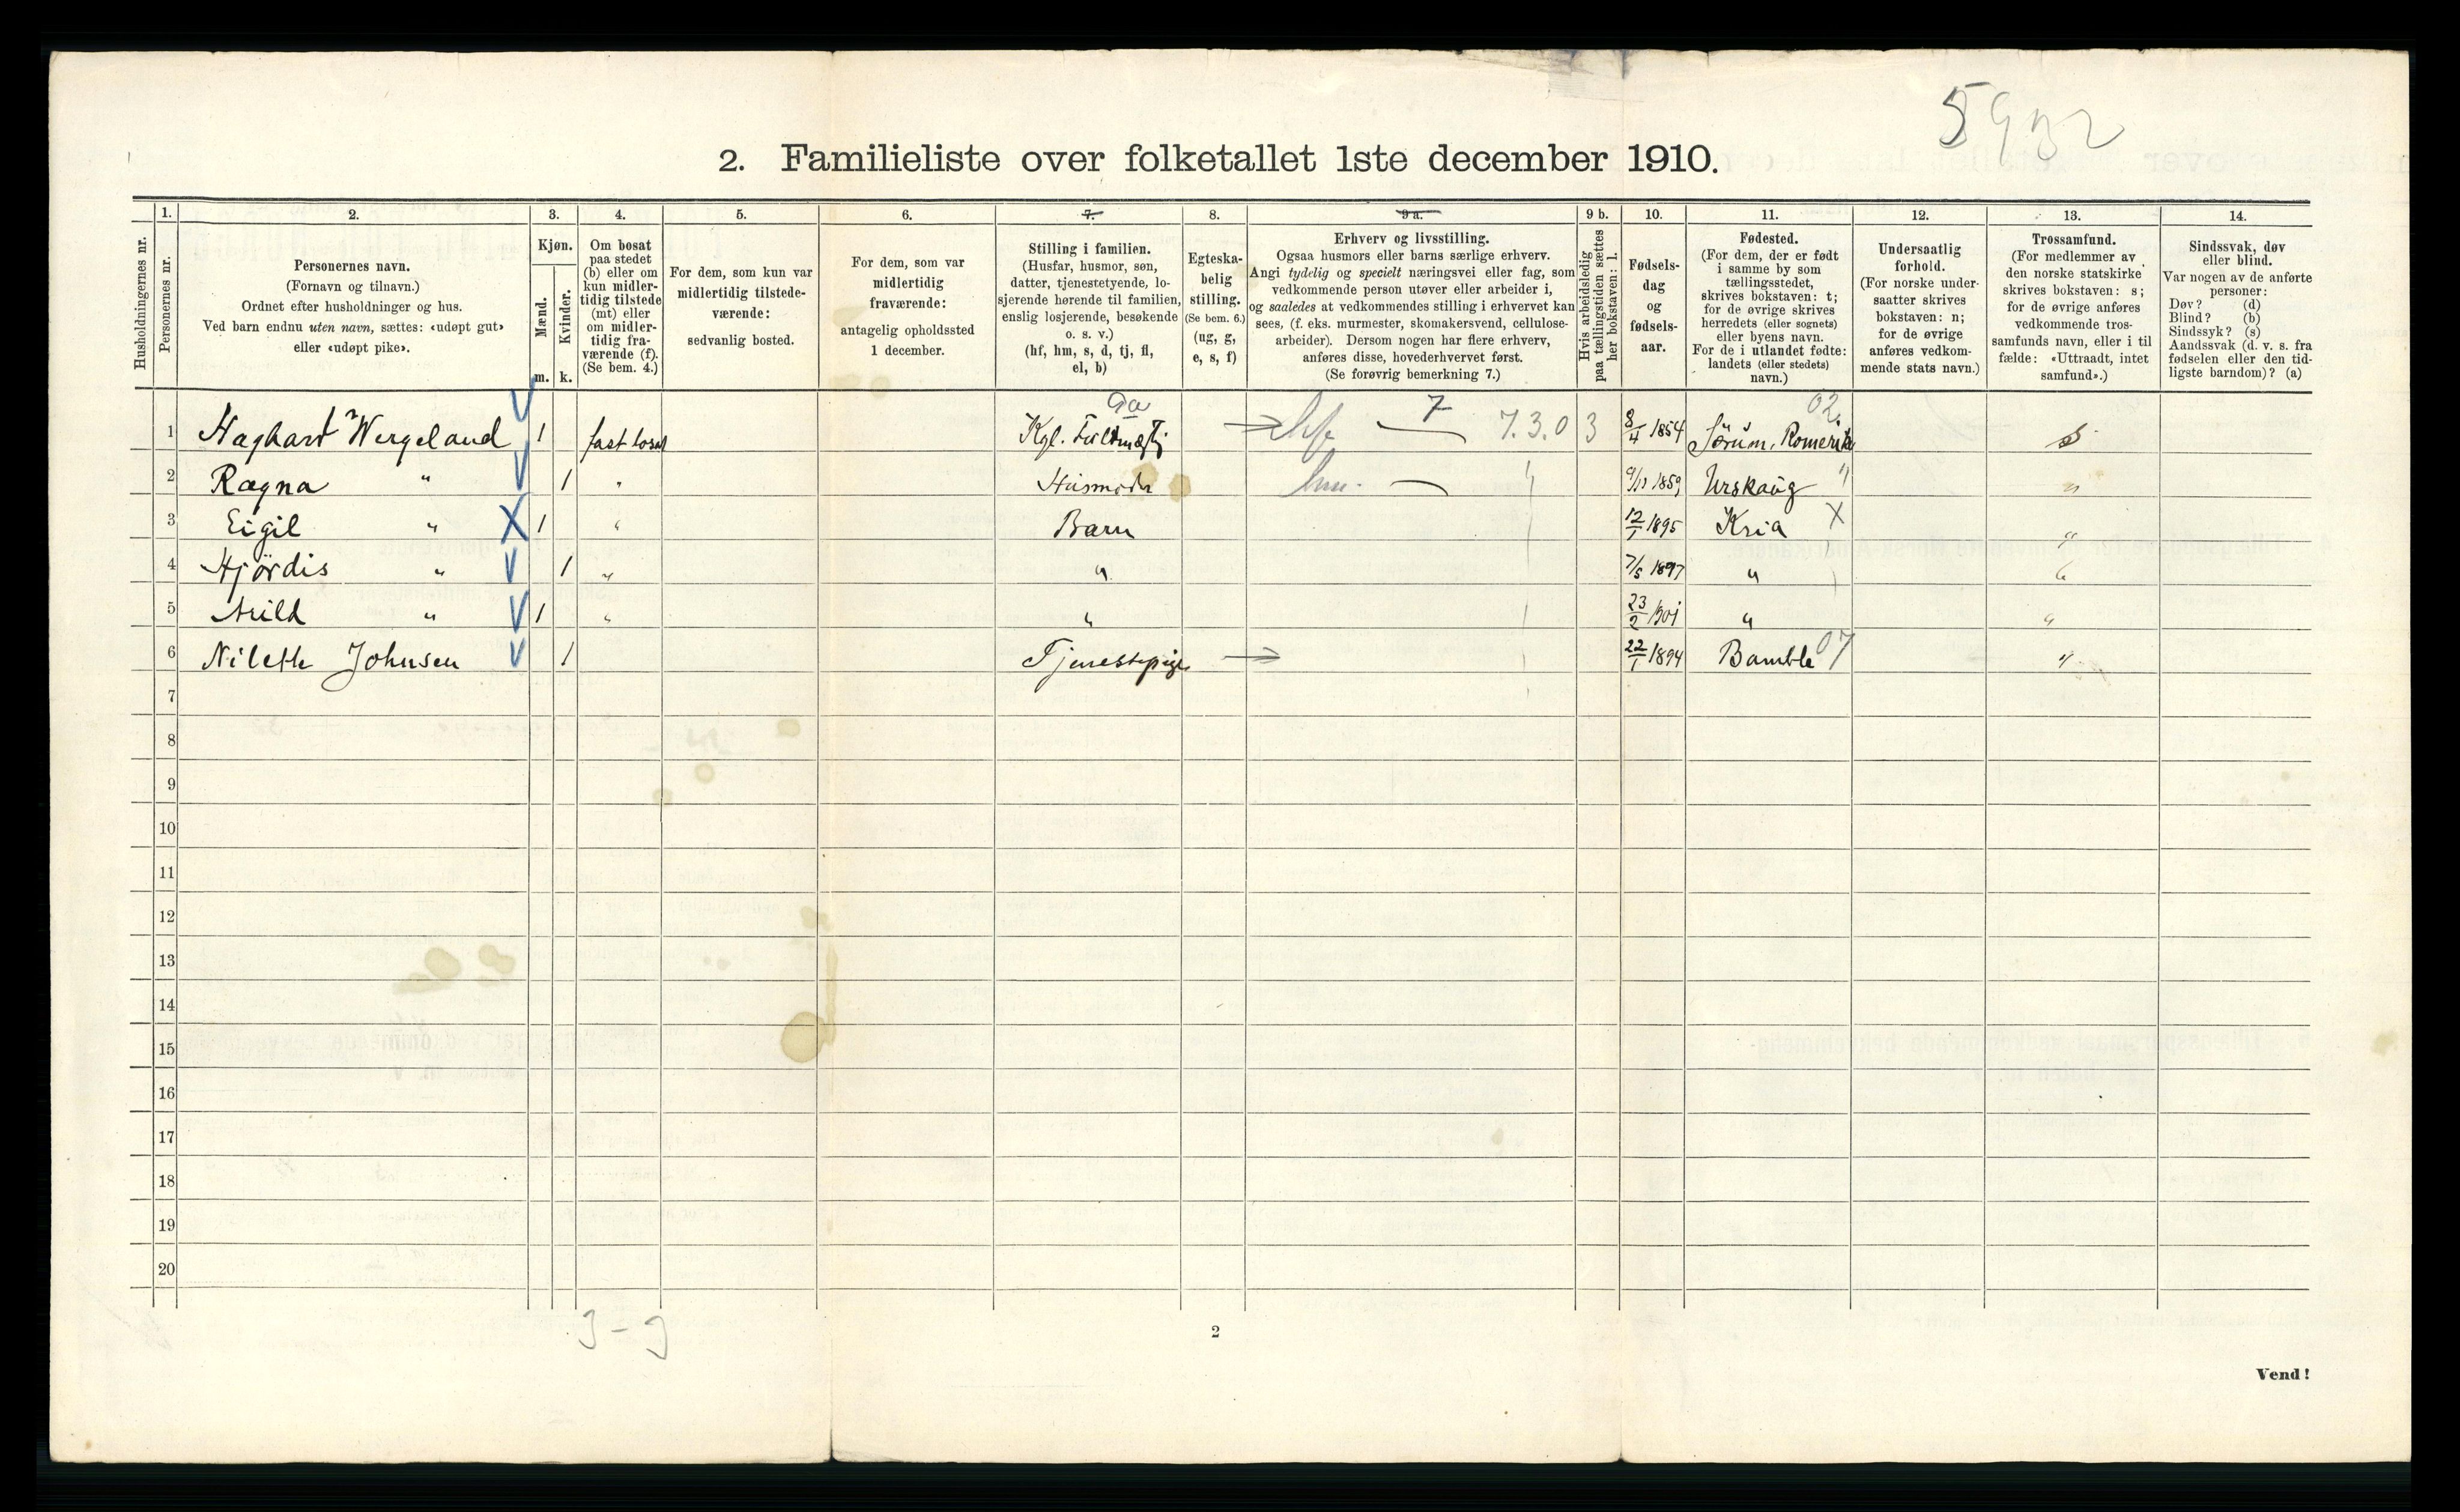 5932
2. Familieliste over folketallet 1ste december 1910.
1. 2. 3. 4. 5. 6. 7. 8. 9 a. 9 b. 10. 11. 12. 13. 14.
Husholdningernes nr.
Personernes nr.
Personernes navn.
(Fornavn og tilnavn.)
Ordnet efter husholdninger og hus.
Ved barn endnu uten navn, sættes: «udøpt gut»
eller «udøpt pike».
Kjøn.
Mænd.
Kvinder.
m. k.
Om bosat
paa stedet
(b) eller om
kun midler-
tidig tilstede
(mt) eller
om midler-
tidig fra-
værende (f).
(Se bem. 4.)
For dem, som kun var
midlertidig tilstede-
værende:
sedvanlig bosted.
For dem, som var
midlertidig
fraværende:
antagelig opholdssted
1 december.
Stilling i familien.
(Husfar, husmor, søn,
datter, tjenestetyende, lo-
sjerende hørende til familien,
enslig losjerende, besøkende
o. s. v.)
(hf, hm, s, d, tj, fl,
el, b)
Egteska-
belig
stilling.
(Se bem. 6.)
(ug, g,
e, s, f)
Erhverv og livsstilling.
Ogsaa husmors eller barns særlige erhverv.
Angi tydelig og specielt næringsvei eller fag, som
vedkommende person utøver eller arbeider i,
og saaledes at vedkommendes stilling i erhvervet kan
sees, (f. eks. murmester, skomakersvend, cellulose-
arbeider). Dersom nogen har flere erhverv,
anføres disse, hovederhvervet først.
(Se forøvrig bemerkning 7.)
Hvis arbeidsledig
paa tællingstiden sættes
her bokstaven: l.
Fødsels-
dag
og
fødsels-
aar.
Fødested.
(For dem, der er født
i samme by som
tællingsstedet,
skrives bokstaven: t;
for de øvrige skrives
herredets (eller sognets)
eller byens navn.
For de i utlandet fødte:
landets (eller stedets)
navn.)
Undersaatlig
forhold.
(For norske under-
saatter skrives
bokstaven: n;
for de øvrige
anføres vedkom-
mende stats navn.)
Trossamfund.
(For medlemmer av
den norske statskirke
skrives bokstaven: s;
for de øvrige anføres
vedkommende tros-
samfunds navn, eller i til
fælde: «Uttraadt, intet
samfund».)
Sindssvak, døv
eller blind.
Var nogen av de anførte
personer:
Døv? (d)
Blind? (b)
Sindssyk? (s)
Aandssvak (d. v. s. fra
fødselen eller den tid-
ligste barndom)? (a)
9a 7 02
1 Haghart Wergeland 1 fast bosat Kgl. Fuldmægtig 7.3.0 3 8/4 1854 Sørum, Romerike s
2 Ragna " 1 " Husmoder hm. 1859 Urskaug " "
3 Eigil " 1 " Barn 12/1 1895 Kria X "
4 Hjördis " 1 " " 7/5 1897 " "
5 Arild " 1 " " 23/2 1901 " "
6 Nileth Johnsen 1 Tjenestepige 22/1 1894 Bamble 07 "
7
8
9
10
11
12
13
14
15
16
17
18
19
20
3 - 3
2
Vend!